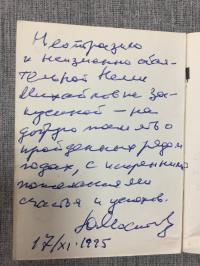 Неотразимо
и неизменно обая-
тельной Нелли
Михайловне За-
кусиной — на
добрую память о
пройденных рядом
годах, с искренними
пожеланиями
счастья и успехов.
17/XI-1995